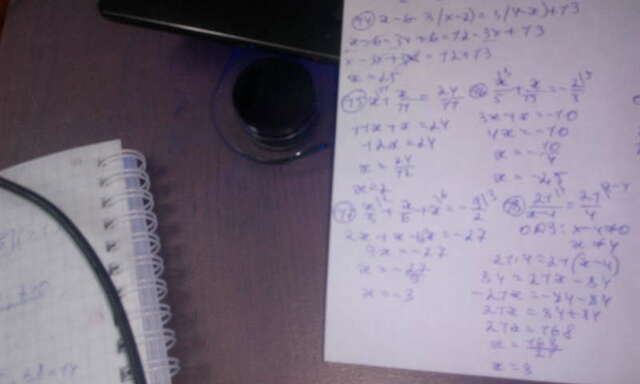 74 x-6-3(x-2)=3(4-x)+13
x-6-3x+6=12-3x+13
x-3x+3x=12+13
x=25
75 x+x/11=24/11
11x+x=24
12x=24
x=24/12
x=2
76 x/5+x/15=-2/3
3x+x=-10
4x=-10
x=-10/4
x=-2,5
77 x/3+x/6+x=-9/2
2x+x+6x=-27
9x=-27
x=-27/9
x=-3
78 21/x-4=21/4
ОДЗ: x-4≠0
x≠4
21·4=21(x-4)
84=21x-84
-21x=-84-84
21x=84+84
21x=168
x=168/21
x=8